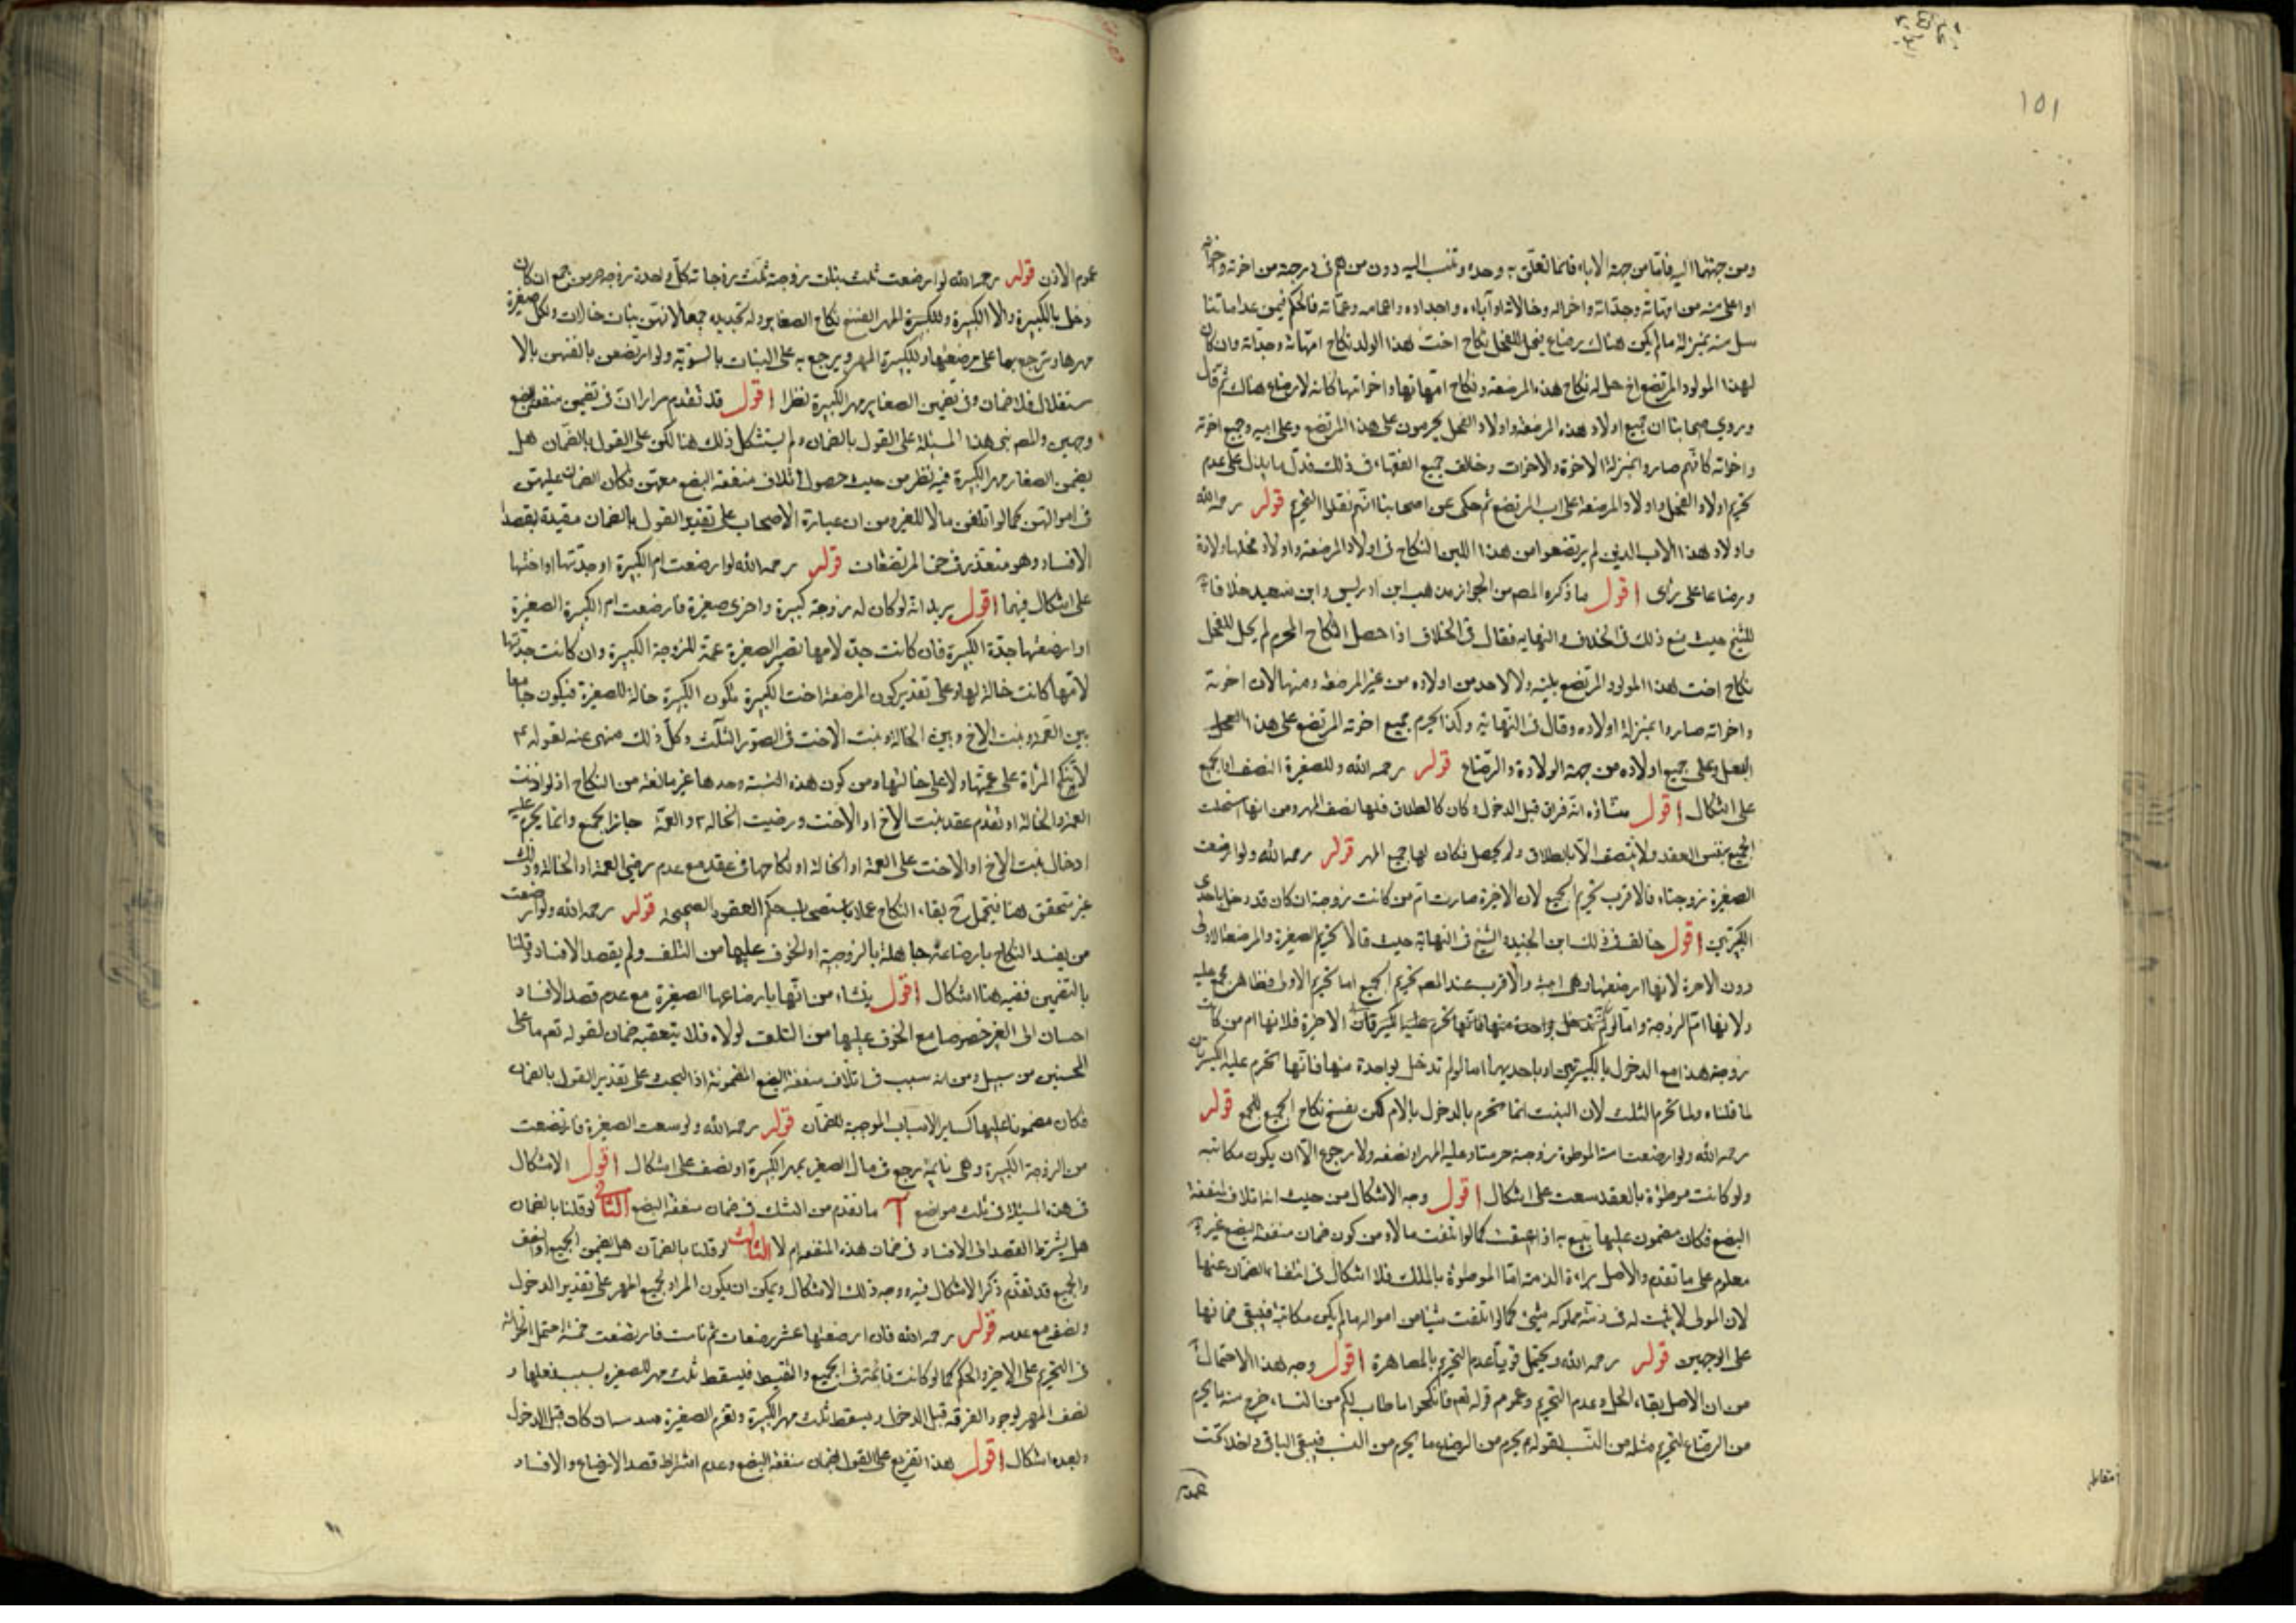 ١٥١
ومن جهتها اليه فأما من جهة الاباء فانما تعلق به وحده وتنسب اليه دون من هم فى درجته من اخوته واخواته
او اعلى منه من امهاته وجداته واخواله وخالاته او آباءه واجداده واعمامه وعماته فالحكم فيمن عداه ما تنا
سل منه بمنزلة ما لم يكن هناك رضاع فيحل للفحل نكاح اخت هذا الولد ونكاح امهاته وجداته وان كان
لهذا المولود المرتضع اخ حل له نكاح هذه المرضعة ونكاح امهاتها واخواتها كانه لا رضاع هناك ثم قال
وروى اصحابنا ان جميع اولاد هذه المرضعة واولاد الفحل يحرمون على هذا المرتضع وعلى ابيه وجميع اخوته
واخواته كانهم صاروا بمنزلة الاخوة والاخوات وخالف جميع الفقهاء فى ذلك فدل ما يدل على عدم
تحريم اولاد الفحل واولاد المرضعة على اب المرتضع ثم حكى عن اصحابنا انهم نقلوا التحريم قوله رحمه الله
ولاولاد هذا الاب الذين لم يرتضعوا من هذا اللبن النكاح فى اولاد المرضعة واولاد فحلها ولادة
ورضاعا على رأى اقول ما ذكره المصم من الجواز مذهب ابن ادريس وابن سعيد خلافا
للشيخ حيث منع ذلك فى الخلاف والنهاية فقال فى الخلاف اذا حصل الرضاع المحرم لم يحل للفحل
نكاح اخت هذا المولود المرتضع بلبنه ولا لاحد من اولاده من غير المرضعة ومنها لان اخوته
واخواته صاروا بمنزلة اولاده وقال فى النهاية وكذا يحرم جميع اخوة المرتضع على هذا الفحل
البعل وعلى جميع اولاده من جهة الولادة والرضاع قوله رحمه الله وللصغيرة النصف او الجميع
على اشكال اقول منشاؤه انه فرق قبل الدخول وكان كالطلاق فلها نصف المهر ومن انها استحقت
الجميع بنفس العقد ولا ينتصف الا بالطلاق ولم يحصل فكان لها جميع المهر قوله رحمه الله ولو ارضعت
الصغيرة زوجتاه فالاقرب تحريم الجميع لان الاخيرة صارت ام من كانت زوجته ان كان قد دخل باحدى
الكبرتين اقول خالف فى ذلك ابن الجنيد والشيخ فى النهاية حيث قالا تحرم الصغيرة والمرضعة الاولى
دون الاخرة لانها ارضعتها وهى ابنته والاقرب عند المصم تحريم الجميع اما تحريم الاولى فظاهر مجمع عليه
ولانها ام الزوجة
زوجته هذا مع الدخول بالكبيرتين او باحديهما اما لو لم تدخل بواحدة منها فانها تحرم عليه الكبيرتان
لما قلناه ولا تحرم الثلث لان البنت انما تحرم بالدخول بالام لكن يفسخ نكاح الجميع للجمع قوله
رحمه الله ولو ارضعت امته الموطوة زوجته حرمتا وعليه المهر او نصفه ولا رجوع الا ان يكون مكاتبة
ولو كانت موطوة بالعقد سعت على اشكال اقول وجه الاشكال من حيث انه اتلاف لمنفعة
البضع فكان مضمون عليها يتبع به اذا عتقت كما لو اتلفت مالا ومن كون ضمان منفعة البضع غير
معلوم على ما تقدم والاصل براءة الذمة اما الموطوة بالملك فلا اشكال فى انتفاء الضمان عنها
لان المولى لا يثبت له فى ذمة مملوكه شئ كما لو اتلفت شيئا من امواله ما لم يكن مكاتبة فيبقى ضمانها
على الوجهين قوله رحمه الله ويحتمل قويا عدم التحريم بالمصاهرة اقول وجه هذا الاحتمال
من ان الاصل بقاء الحل وعدم التحريم وعموم قوله تعم فانكحوا ما طاب لكم من النساء خرج منه ما يحرم
من الرضاع لتحريم مثله من النسب لقوله ع يحرم من الرضاع ما يحرم من النسب فيبقى الباقى داخلا تحت
عموم
عموم الاذن قوله رحمه الله لو ارضعت ثلث بنات زوجته ثلث زوجاته كل واحدة زوجه حرمن جمع ان كان
دخل بالكبيرة والا الكبيرة وللكبيرة المهر وانفسخ نكاح الصغاير وله تجديده جمعا لانهن بنات خالات ولكل صغيرة
مهرها وترجع بها على مرضعتها وللكبيرة المهر ويرجع به على البنات بالسوية ولو ارتضعن بانفسهن بالا
ستقلال فلا ضمان وفى تضمين الصغاير مهر الكبيرة نظر اقول قد تقدم مرارا ان فى تضمين منفعة البضع
وجهين والمصم بنى هذا المسئلة على القول بالضمان ولم يستشكل ذلك هنا لكن على القول بالضمان هل
يضمن الصغار مهر الكبيرة فيه نظر من حيث حصول اتلاف منفعة البضع معهن فكان الضمان عليهن
فى اموالهن كما لو اتلفن مالا للغير ومن ان عبارة الاصحاب على تقدير القول بالضمان مقيدة بقصد
الافساد وهو متعذر فى حق المرتضعات قوله رحمه الله لو ارضعت ام الكبيرة او جدتها او اختها
على اشكال فيهما اقول يريد انه لو كان له زوجة كبيرة واخرى صغيرة فارضعت ام الكبيرة الصغيرة
او ارضعتها جدة الكبيرة فان كانت جدة لامها تصير الصغيرة عمة للزوجة الكبيرة وان كانت جدتها
لامها كانت خالة لها وعلى تقدير كون المرضعة اخت الكبيرة تكون الكبيرة خالة للصغيرة فيكون جامعا
بين العمة وبنت الاخ وبين الخالة وبنت الاخت فى الصور الثلث وكل ذلك منهى عنه لقوله ع
لا تنكح المراة على عمتها ولا على خالتها ومن كون هذه النسبة وحدها غير مانعة من النكاح اذ لو اذنت
العمة والخالة او تقدم عقد بنت الاخ او الاخت ورضيت الخالة والعمة جاز الجمع وانما يحرم عليه
ادخال بنت الاخ او الاخت على العمة او الخالة او نكاحها فى عقد مع عدم رضى العمة او الخالة وذلك
غير متحقق هنا فيحتمل ح بقاء النكاح عملا باستصحاب حكم العقود الصحيحة قوله رحمه الله ولو ارضعت
من يفسد النكاح بارضاعه جاهلة بالزوجية او للخوف عليها من التلف ولم يقصد الافساد وقلنا
بالتضمين ففيه هنا اشكال اقول ينشاء من انها بارضاعها الصغيرة مع عدم قصد الافساد
احسان الى الغير خصوصا مع الخوف عليها من التلف لولاه فلا يتعقبه ضمان لقوله تعم ما على
المحسنين من سبيل ومن انه سبب فى اتلاف منفعة البضع المضمونة اذ البحث على تقدير القول بالضمان
فكان مضمونا عليها كساير الاسباب الموجبة للضمان قوله رحمه الله ولو سعت الصغيرة فارتضعت
من الزوجة الكبيرة وهى نائمة رجع فى مال الصغيرة بمهر الكبيرة او نصفه على اشكال اقول الاشكال
فى هذه المسئلة فى ثلث مواضع آ ما تقدم من الشك فى ضمان منفعة البضع الثانى لو قلنا بالضمان
هل يشترط القصد الى الافساد فى ضمان هذه المنفعة ام لا الثالث لو قلنا بالضمان هل يضمن الجميع او النصف
والجميع قد تقدم ذكر الاشكال فيه ووجه ذلك الاشكال ويمكن ان يكون المراد بجميع المهر على تقدير الدخول
ونصفه مع عدمه قوله رحمه الله فان ارضعتها عشر رضعات ثم نامت فارتضعت خمسة احتمل الحوالة
فى التحريم على الاخير والحكم كما لو كانت نائمة فى الجميع والتقسيط فيسقط ثلث مهر الصغيرة بسبب فعلها و
نصف المهر لوجود الفرقة قبل الدخول ويسقط ثلث مهر الكبيرة وتغرم الصغيرة سدسا ان كان قبل الدخول
وبعده اشكال اقول هذا تفريع على القول بضمان منفعة البضع وعدم اشتراط قصد الارضاع والافساد